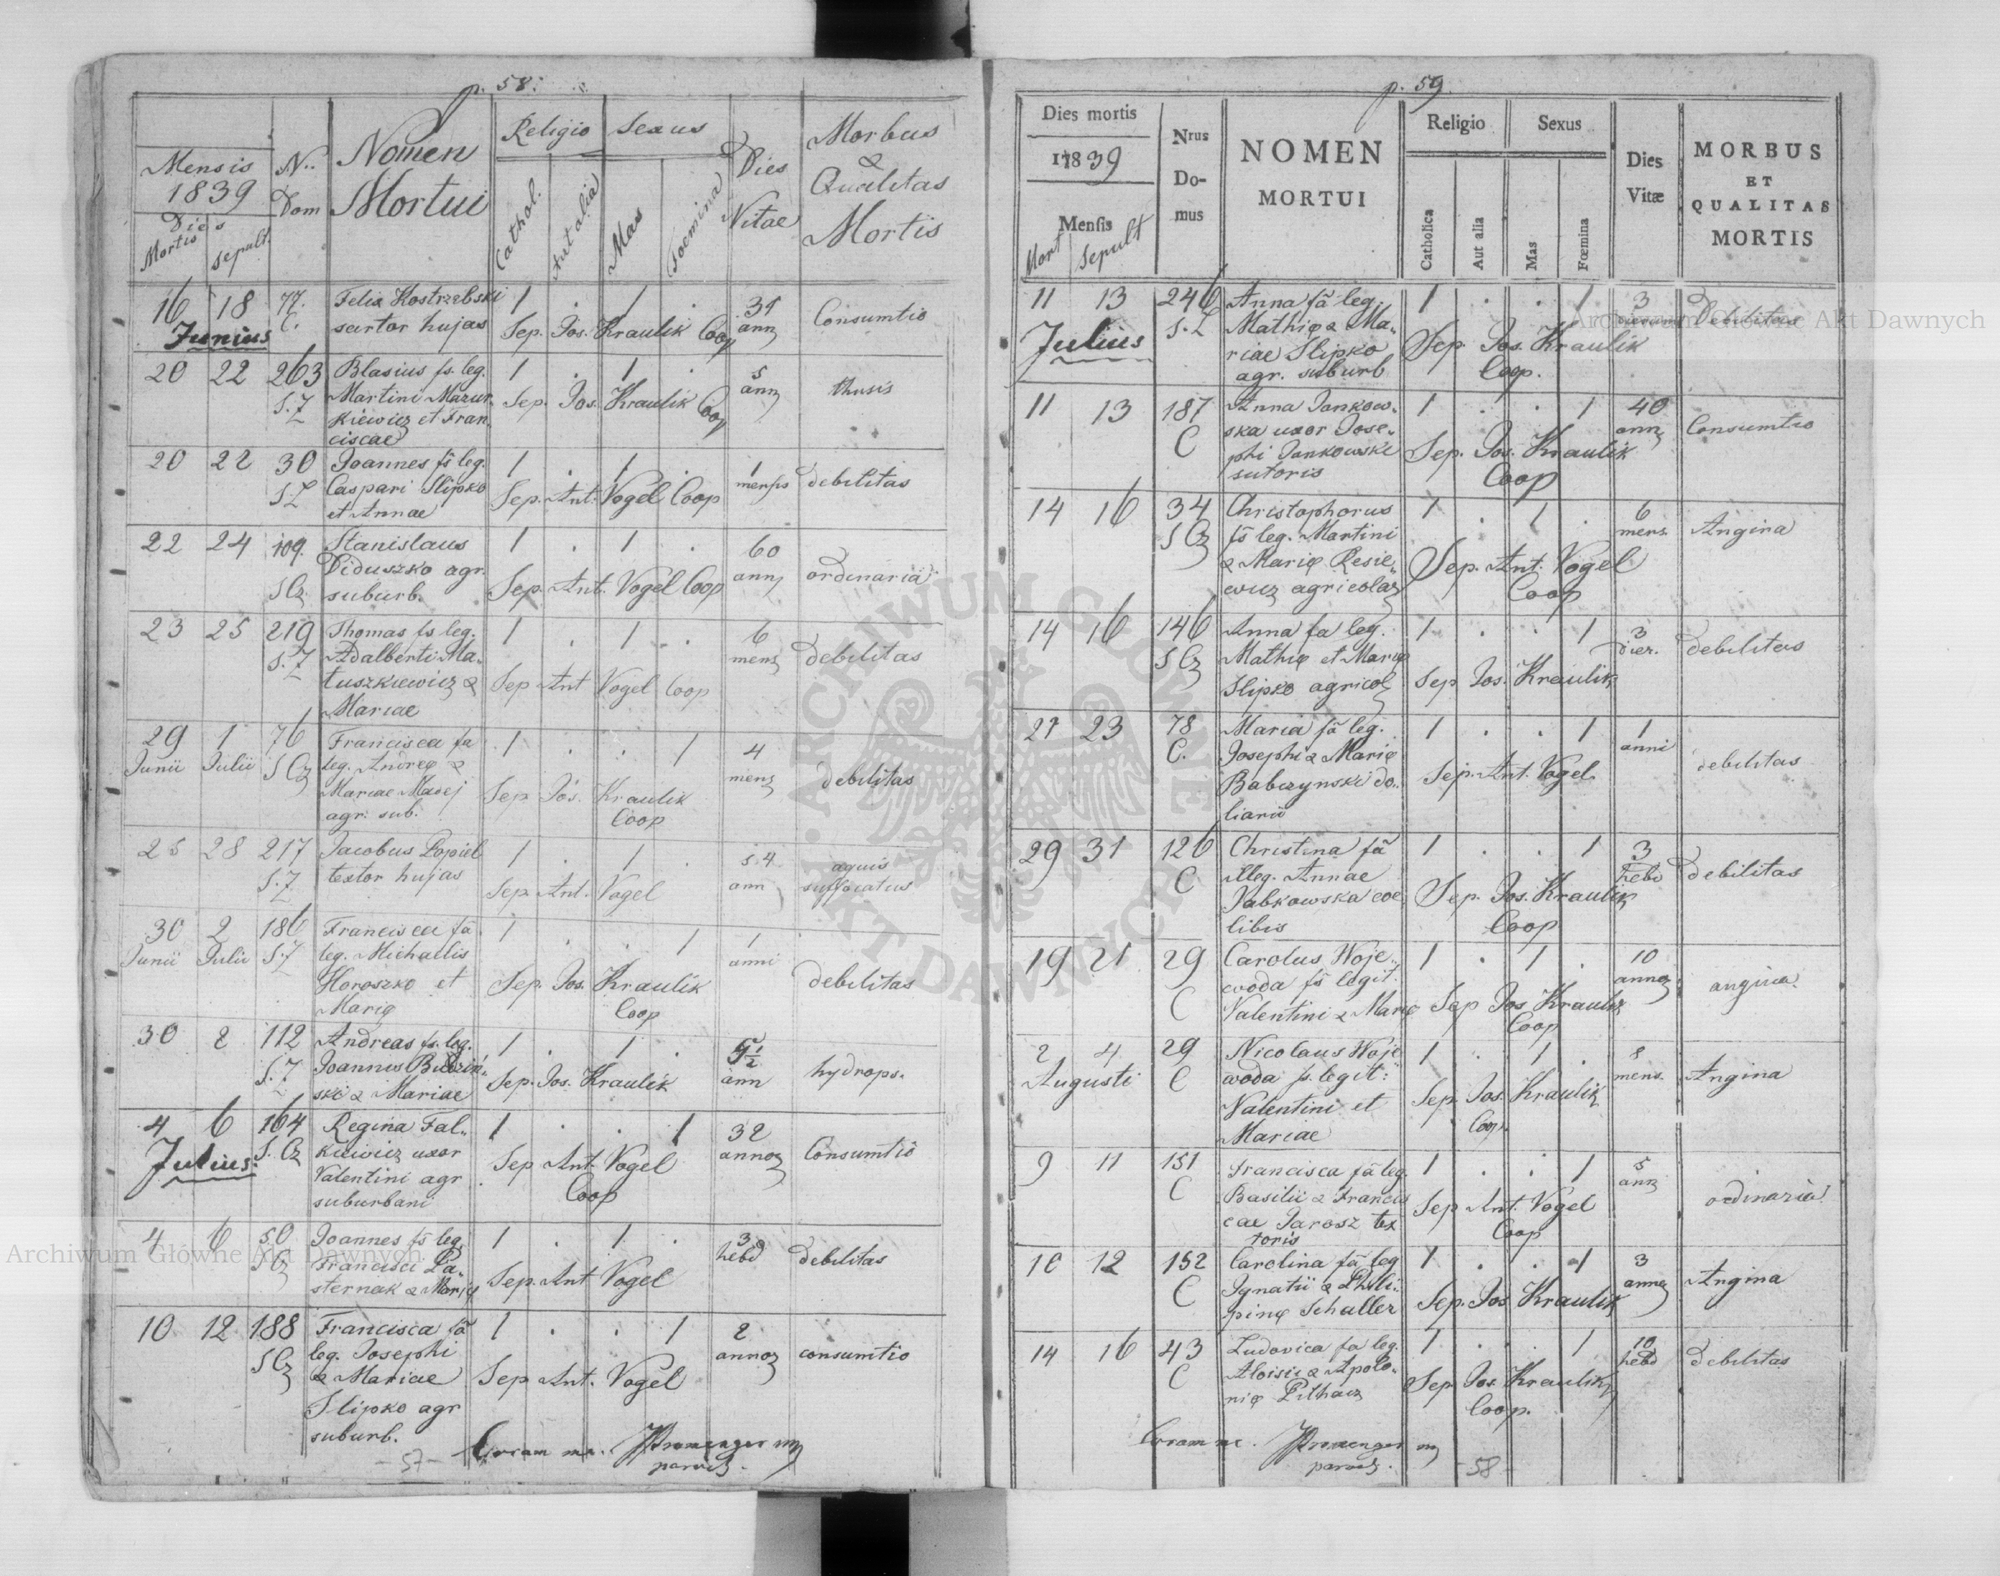 p. 58.
Mensis
1839
Dies
Mortis sepult.
N.
Dom
Nomen
Mortui
Religio
Cathol.
Aut alia
Sexus
Mas
Foemina
Dies
Vitae
Morbus
&
Qualitas
Mortis
16 18 77. Felix Kostrzebski 1 . 1 . 31 Consumtio
Junius C. sartor hujas Sep. Jos. Kraulik Coop ann
20 22 263 Blasius fs. leg. 1 . 1 . 5 thusis
S.Z Martini Mazur- Sep. Jos. Kraulik Coop ann
kiewicz et Fran-
ciscae
20 22 30 Joannes fs leg. 1 . 1 . 1 debilitas
S.Z Caspari Slipko Sep. Ant. Vogel Coop mensis
et Annae
22 24 109. Stanislaus 1 . 1 . 60 ordinaria
S Cz Diduszko agr. Sep. Ant. Vogel Coop ann
suburb.
23 25 219 Thomas fs leg. 1 . 1 . 6 debilitas
S.Z Adalberti Ma- Sep Ant Vogel Coop mens
tuszkiewicz &
Mariae
29 1 76 Francisca fa 1 . . 1 4 debilitas
Junii Julii S Cz leg. Andreę & mens
Mariae Madej Sep Jos. Kraulik
agr. sub. Coop
25 28 217 Jacobus Popiel 1 . 1 . 54 aquis
S.Z textor hujas Sep Ant. Vogel ann suffocatus
30 2 186 Francisca fa 1 . . 1 1 debilitas
Junii Julii S.Z leg. Michaelis anni
Horoszko et Sep. Jos. Kraulik
Marię Coop
30 2 112 Andreas fs. leg. 1 . 1 . 5½ hydrops.
S.Z Joannis Sep. Jos. Kraulik ann
ski & Mariae
4 6 164 Regina Fal- 1 . . 1 32 Consumtio
Julius. S. Cz kiewicz uxor Sep Ant. Vogel annoz
Valentini agr Coop
suburbani
4 6 50 Joannes fs leg 1 . 1 . 3 debilitas
S Cz Francisci Pa- Sep. Ant Vogel hebd
sternak & Marię
10 12 188 Francisca fa 1 . . 1 2 consumtio
S Cz leg. Josephi annoz
& Mariae Sep Ant. Vogel
Slipko agr
suburb.
- 57 - Coram me.
p. 59
Dies mortis
1839
Mensis
Mort Sepult
Nrus
Do-
mus
NOMEN
MORTUI
Religio
Catholica
Aut alia
Sexus
Mas
Fœmina
Dies
Vitæ
MORBUS
ET
QUALITAS
MORTIS
11 13 246 Anna fa leg. 1 . . 1 3 Debilitas
Julius S.Z Mathię & Ma- Sep. Jos. Kraulik
riae Slipko Coop.
agr. suburb
11 13 187 Anna Jankow- 1 . . 1 40 Consumtio
C ska uxor Jose- Sep. Jos. Kraulik ann
phi Jankowski Coop
sutoris
14 16 34 Christophorus 1 . 1 . 6 Angina
S Cz fs leg. Martini mens.
& Marię Resie- Sep. Ant. Vogel
wicz agricolaz Coop
14 16 146 Anna fa leg. 1 . . 1 3 debilitas
S Cz Mathię et Marię dier.
Slipko agricol Sep Jos. Kraulik
21 23 78 Maria fa leg. 1 . . 1 1 debilitas
C. Josephi & Marię anni
Babczynski do- Sep. Ant. Vogel
liarii
29 31 126 Christina fa 1 . . 1 3 debilitas
C illeg. Annae hebd
Jabkowska coe Sep. Jos. Kraulik
libis Coop
19 21 29 Carolus Woje- 1 . 1 . 10 angina.
C woda fs legit. annoz
Valentini & Marię Sep Jos Kraulik
Coop
2 4 29 Nicolaus Woje 1 . 1 . 8 Angina
Augusti C woda fs. legit: mens.
Valentini et Sep. Jos. Kraulik
Mariae Coop
9 11 151 Francisca fa leg. 1 . . 1 5 ordinaria
C Basilii & Francis ann
cae Jarosz tex Sep Ant. Vogel
toris Coop
10 12 152 Carolina fa leg 1 . . 1 3 Angina
C Ignatii & Phili- annoz
pinę Schaller Sep. Jos Kraulik
14 16 43 Ludovica fa leg. 1 . . 1 10 debilitas
C Aloisii & Apolo- hebd
nię Sep. Jos. Kraulik
Coop.
Coram me.
58
Archiwum Główne Akt Dawnych
Archiwum Główne Akt Dawnych
ARCHIWUM GŁÓWNE AKT DAWNYCH